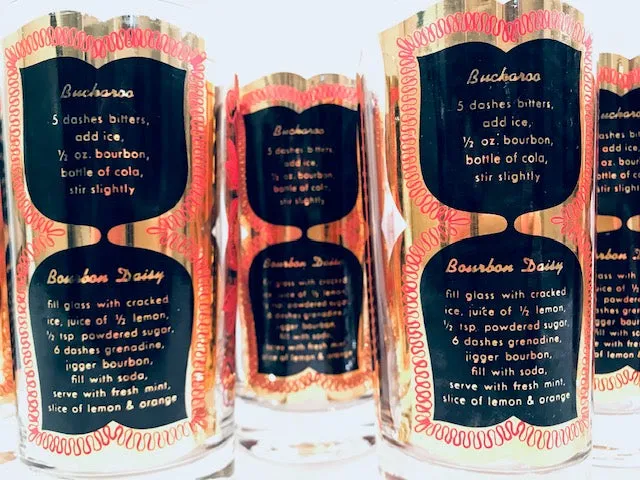 Bucharoo
5 dashes bitters,
add ice,
½ oz. bourbon,
bottle of cola,
stir slightly
Bourbon Daisy
fill glass with cracked
ice, juice of ½ lemon,
½ tsp. powdered sugar,
6 dashes grenadine,
jigger bourbon,
fill with soda,
serve with fresh mint,
slice of lemon & orange
Bucharoo
5 dashes bitters,
add ice,
½ oz. bourbon,
bottle of cola,
stir slightly
Bourbon Daisy
fill glass with cracked
ice, juice of ½ lemon,
½ tsp. powdered sugar,
6 dashes grenadine,
jigger bourbon,
fill with soda,
serve with fresh mint,
slice of lemon & orange
Bucharoo
5 dashes bitters,
add ice,
½ oz. bourbon,
bottle of cola,
stir slightly
Bourbon Daisy
fill glass with cracked
ice, juice of ½ lemon,
½ tsp. powdered sugar,
6 dashes grenadine,
jigger bourbon,
fill with soda,
serve with fresh mint,
slice of lemon & orange